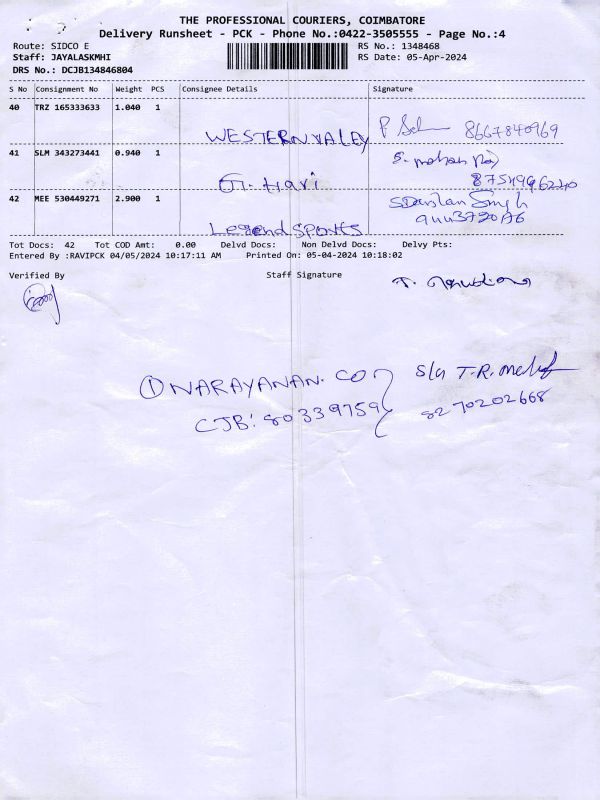 THE PROFESSIONAL COURIERS, COIMBATORE
Delivery Runsheet - PCK - Phone No.:0422-3505555 - Page No.:4
Route: SIDCO E
Staff: JAYALASKMHI
DRS No.: DCJB134846804
RS No.: 1348468
RS Date: 05-Apr-2024
S No Consignment No Weight PCS Consignee Details Signature
40 TRZ 165333633 1.040 1
WESTERN VALEY P 8667840969
41 SLM 343273441 0.940 1 S. mohan
G. Hari
42 MEE 530449271 2.900 1 S Darshan Singh
Legend SPORTS
Tot Docs: 42 Tot COD Amt: 0.00 Delvd Docs: Non Delvd Docs: Delvy Pts:
Entered By :RAVIPCK 04/05/2024 10:17:11 AM Printed On: 05-04-2024 10:18:02
Verified By Staff Signature
① NARAYANAN. CO T.R.
CJB: 80339759 8270202668